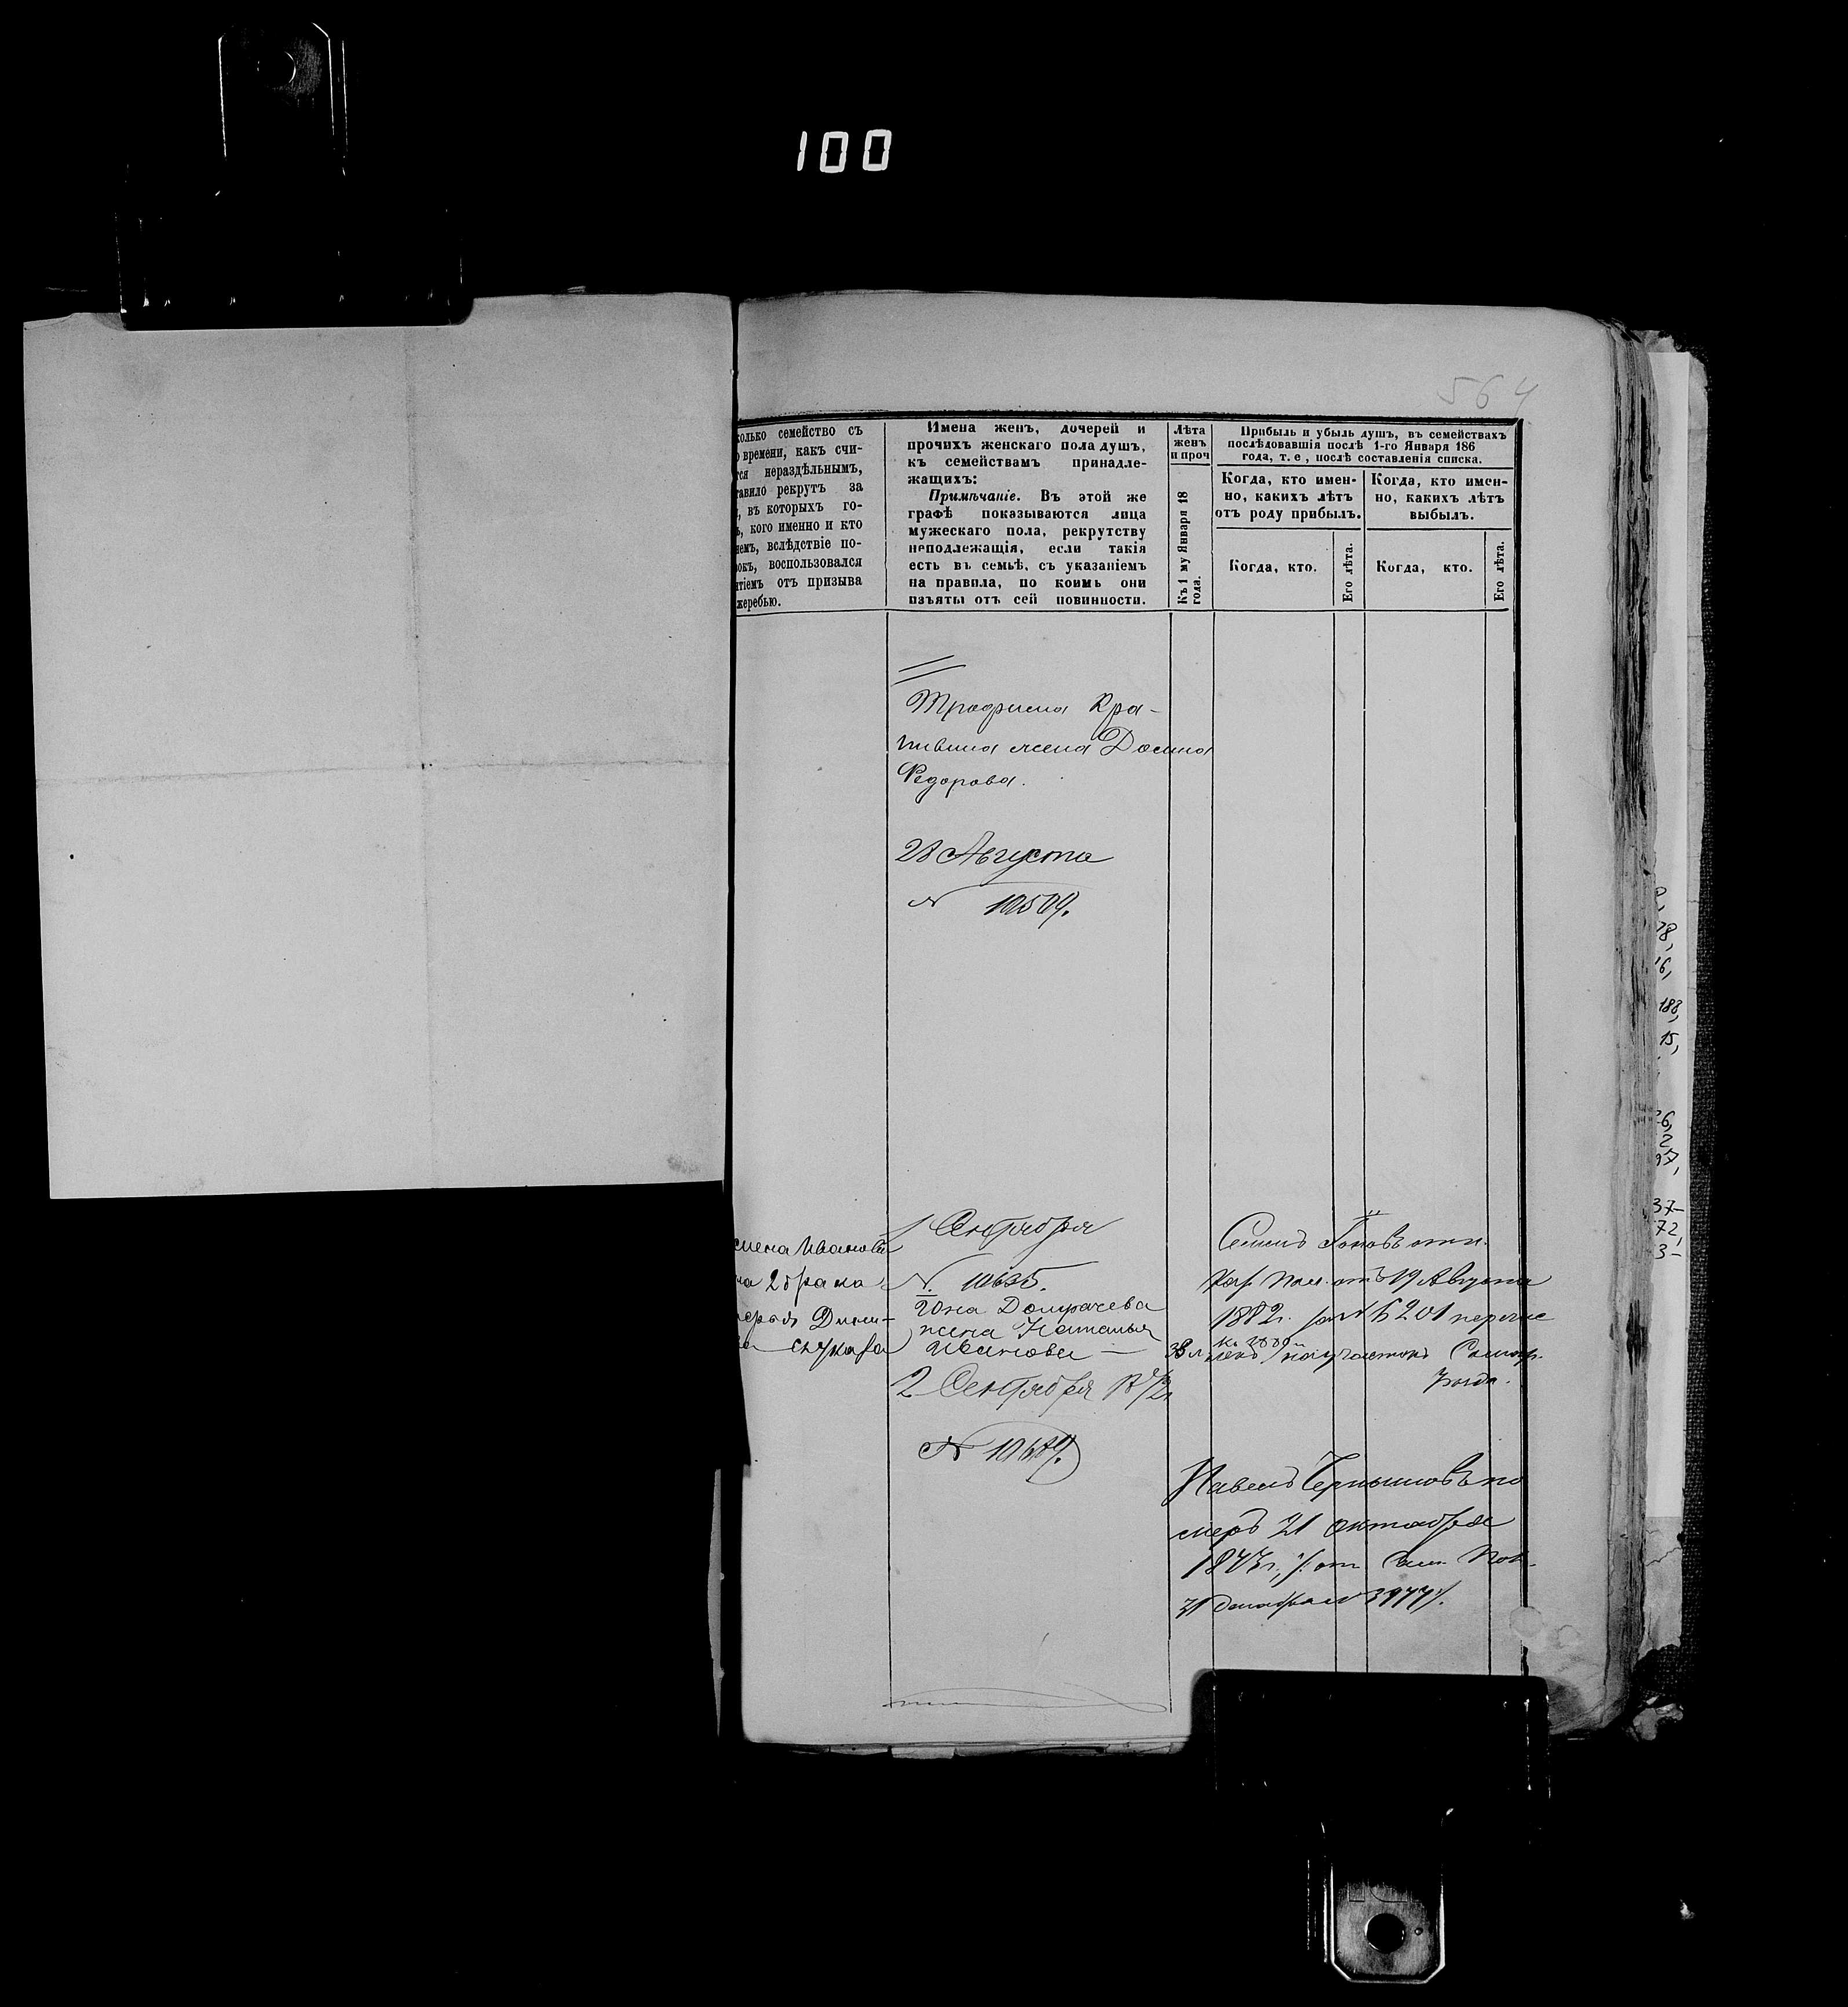 100
564
колько семейство съ
о времени, какъ счи-
тся нераздѣльнымъ,
тавило рекрутъ за
, въ которыхъ го-
ъ, кого именно и кто
немъ, вслѣдствіе по-
окъ, воспользовался
тіемъ отъ призыва
жеребью.
Имена женъ, дочерей и
прочихъ женскаго пола душъ,
къ семействамъ принадле-
жащихъ:
Примѣчаніе. Въ этой же
графѣ показываются лица
мужескаго пола, рекрутству
неподлежащія, если такія
есть въ семьѣ, съ указаніемъ
на правила, по коимъ они
изъяты отъ сей повинности.
Лѣта
женъ
и проч
Къ 1 му Января 18
года.
Прибыль и убыль душъ, въ семействахъ
послѣдовавшія послѣ 1-го Января 186
года, т. е, послѣ составленія списка.
Когда, кто имен-
но, какихъ лѣтъ
отъ роду прибылъ.
Когда, кто имен-
но, какихъ лѣтъ
выбылъ.
Когда, кто.
Его лѣта.
Когда, кто.
Его лѣта.
Трофима Кра-
пивина жена Домна
Федорова.
28 Августа
N 10509.
1 Сентября
N. 10635.
Іона Домрачева
жена Наталья
Иванова —
2 Сентября
N
Иванова
2 брака
Семенъ
19 Августа
1882г. 6201
участокъ
Павелъ Чернышовъ по
меръ 21 октября
отъ
3977.
78,
16,
188,
15,
26,
2
97,
37-
72,
3-